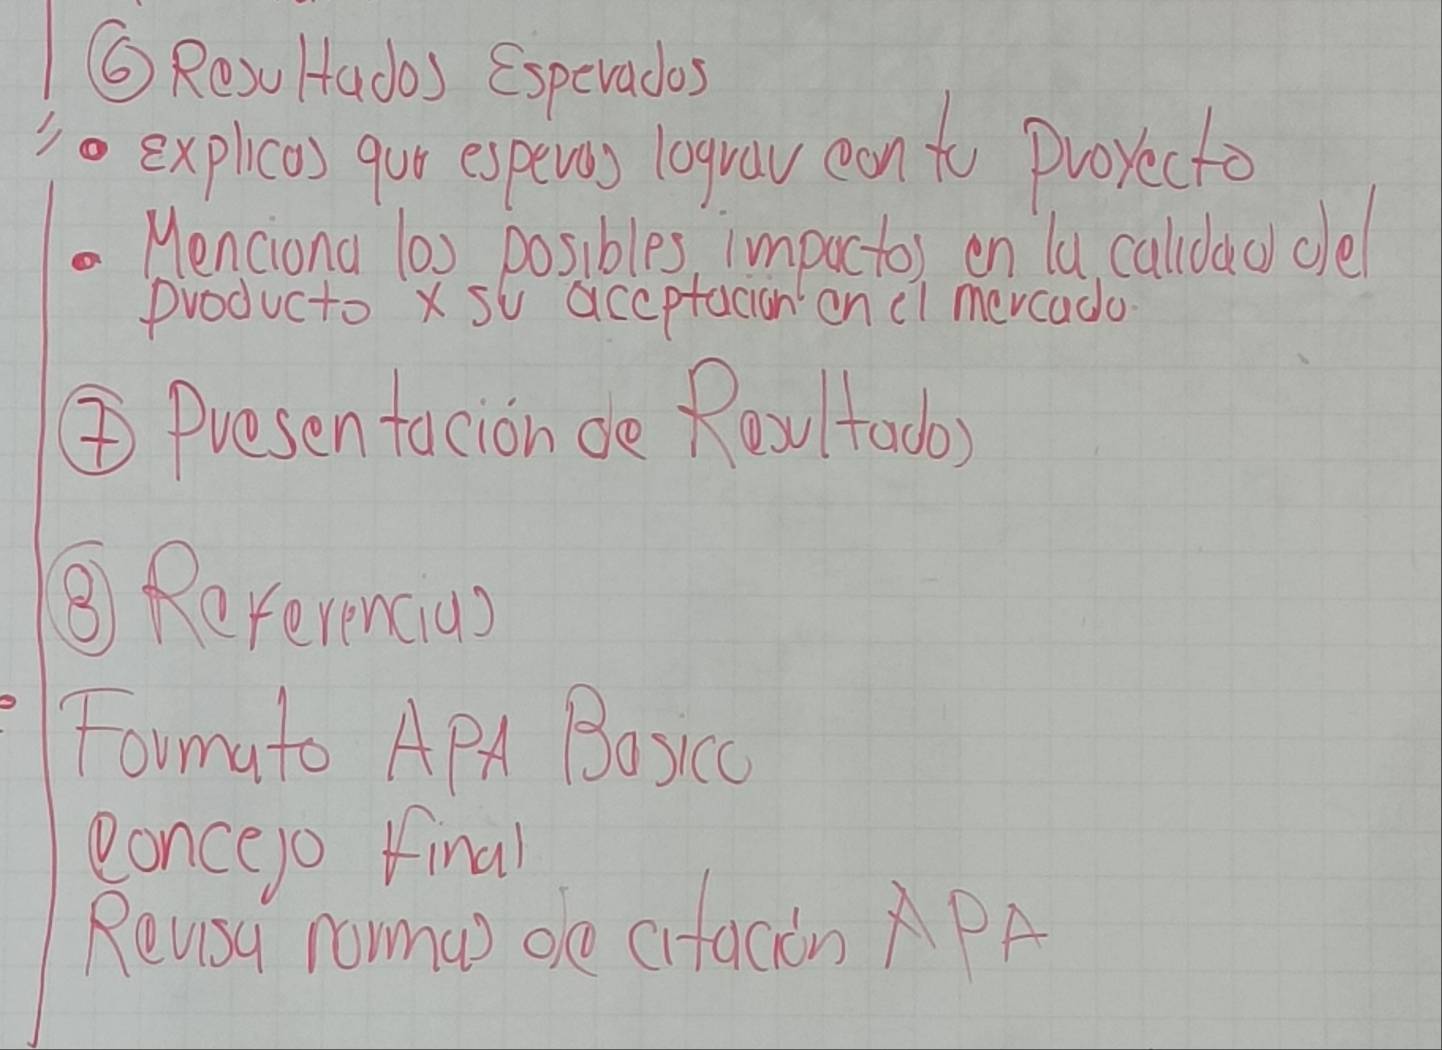 ⑥ Resultados Esperados
• Explicas que esperas lograr con tu Proyecto
• Menciona los posibles impactos en la calidad del
producto x su acceptación en el mercado.
⑦ Presentación de Resultados
⑧ Referencias
Formato APA Basico
Concejo final
Revisa normas de citación APA